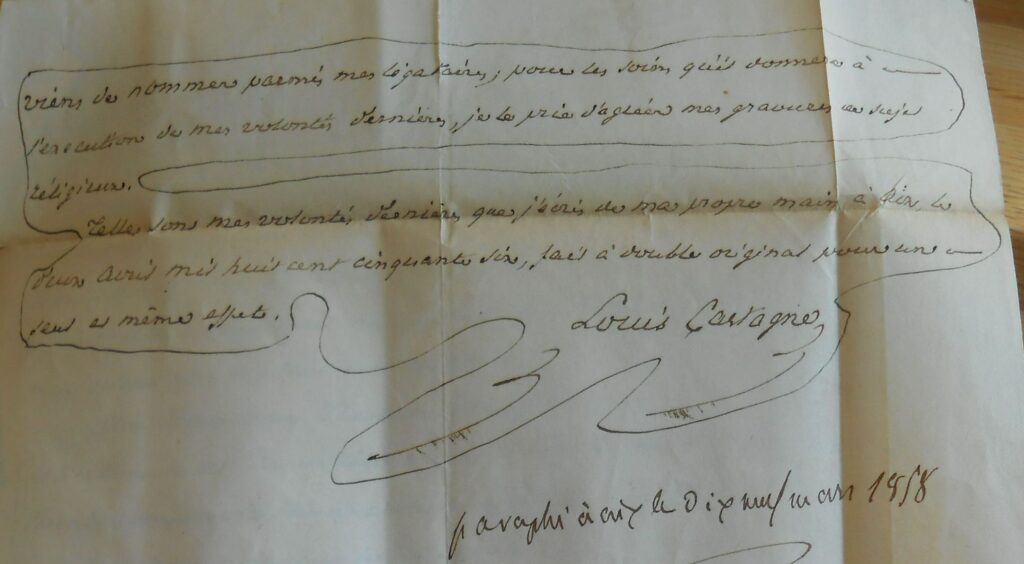 viens de nommer parmis mes légataires, pour les soins qu'il donnera à
l'execution de mes volontés dernières, je le prie d'agréer mes gravures de sujet
réligieux.
Telles sont mes volontés dernières que j'écris de ma propre main à Aix, le
deux avril mil huit cent cinquante six, fait à double original pour un
seul et même effet.
Louis Castagne
paraphé à aix le dix neuf mars 1858